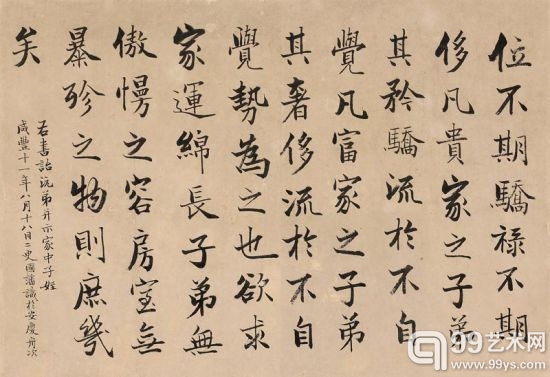 位不期驕禄不期
侈凡貴家之子弟
其矜驕流於不自
覺凡富家之子弟
其奢侈流於不自
覺勢為之也欲求
家運綿長子弟無
傲慢之容房室無
暴殄之物則庶幾
矣
右書詒沅弟并示家中子姪
咸豐十一年八月十八日二更國藩識於安慶舟次
99艺术网
99ys.com